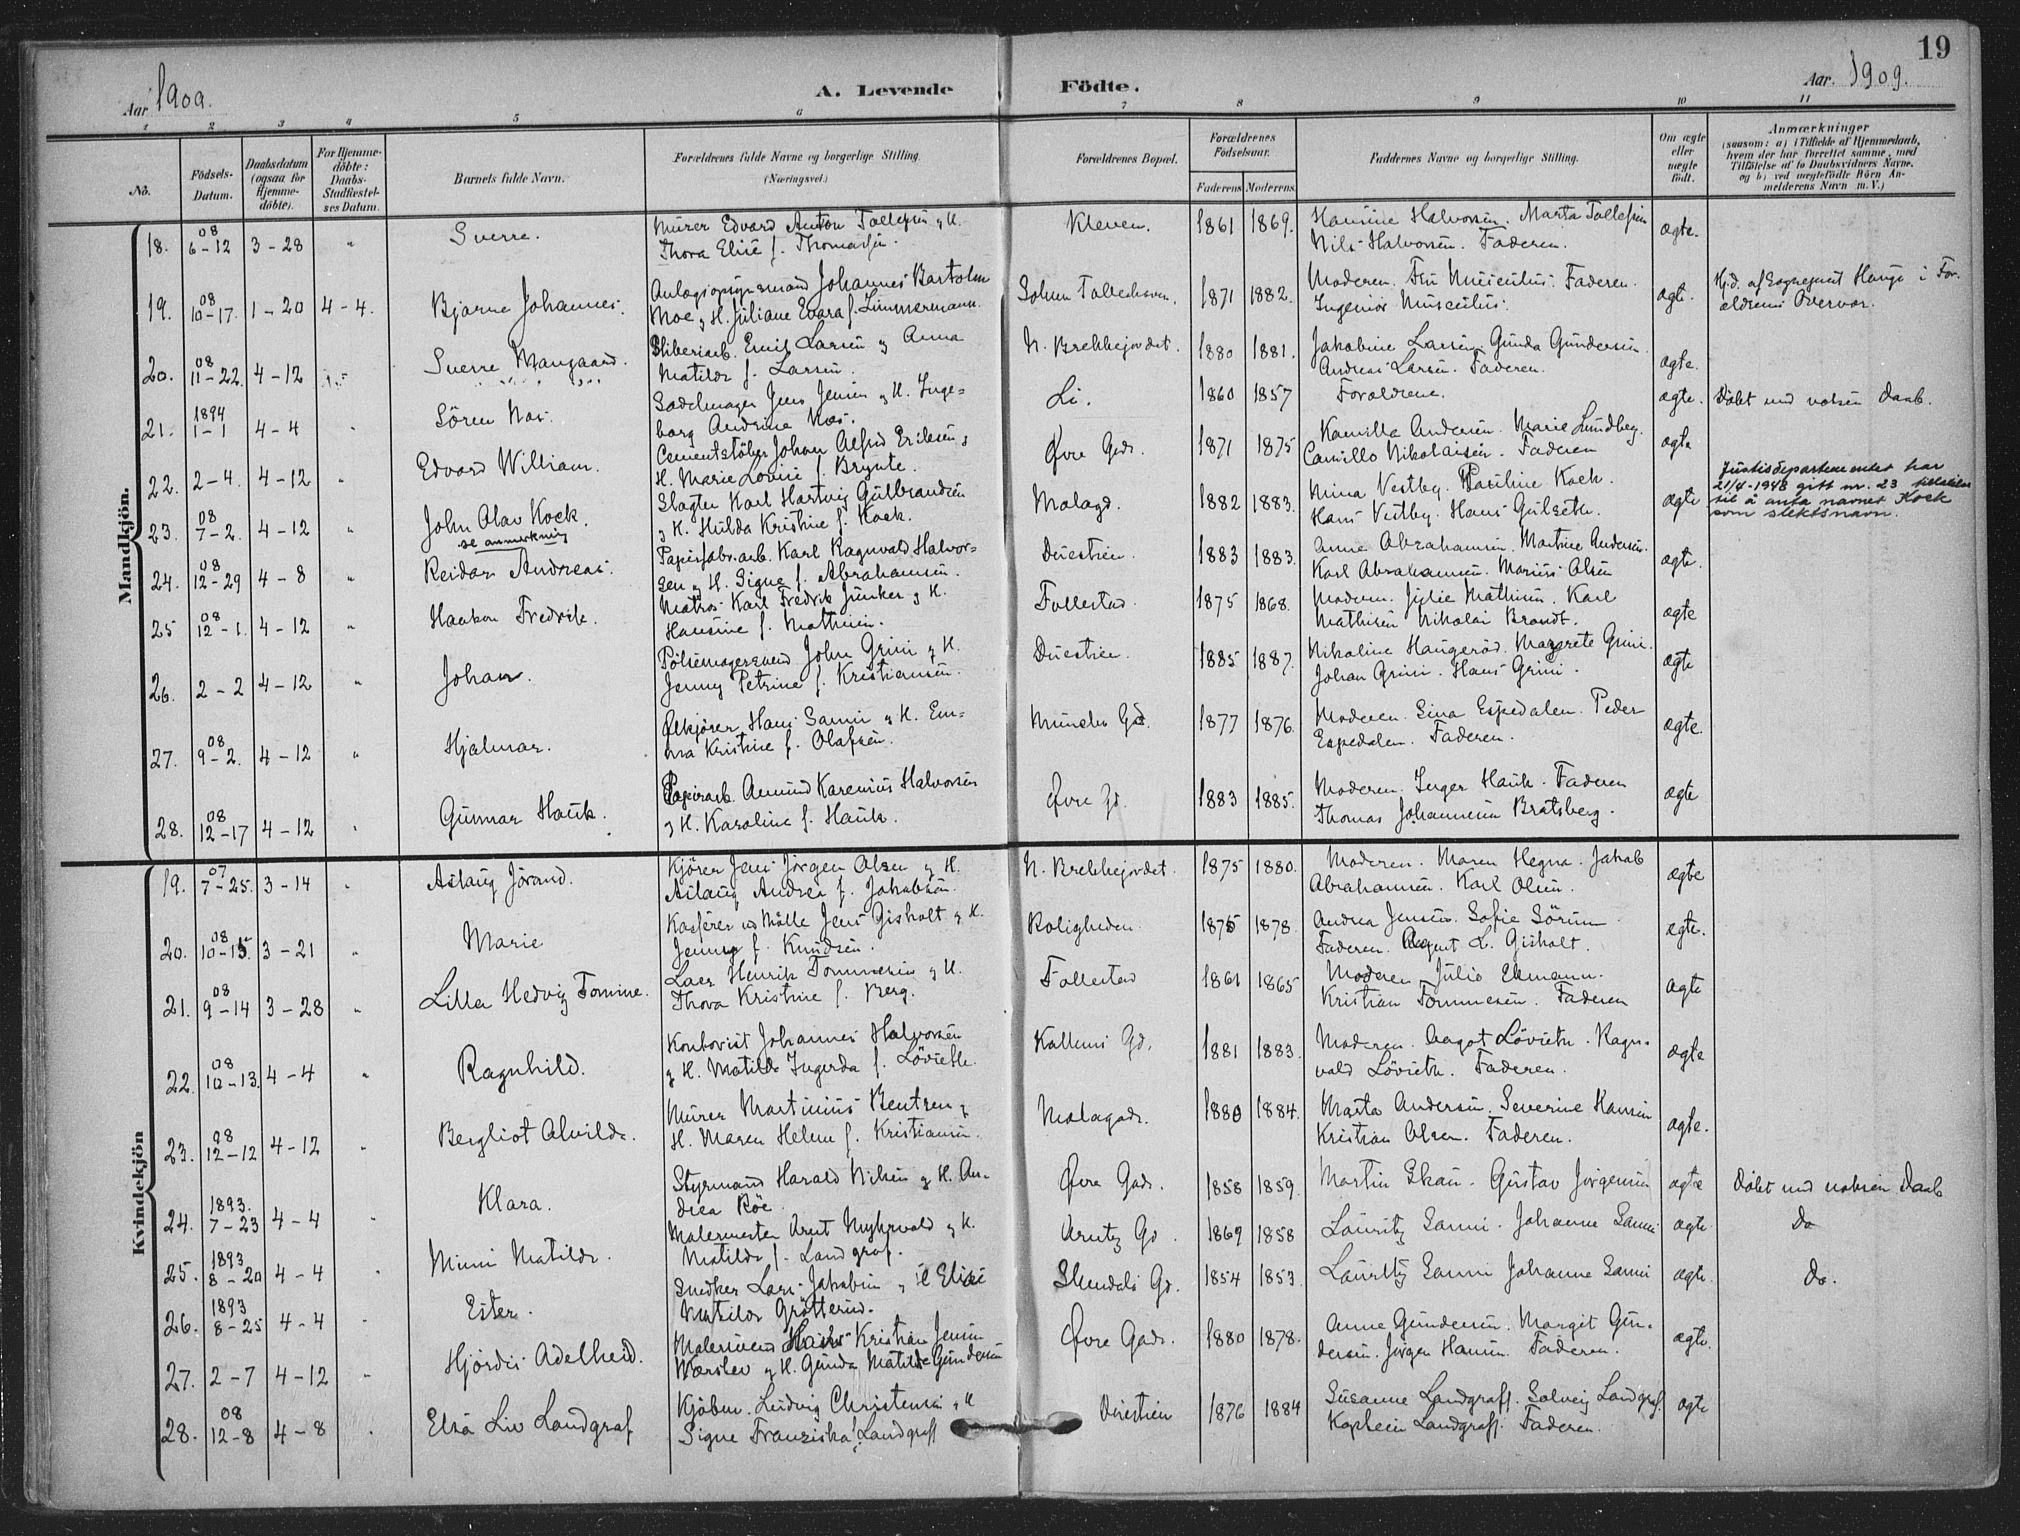 19
Aar 1909.
A. Levende
Födte.
Aar. 1909.
1 2 3 4 5 6 7 8 9 10 11
No.
Födsels-
Datum.
Daabsdatum
(ogsaa for
Hjemme-
döbte).
For Hjemme-
döbte:
Daabs-
Stadfæstel-
ses Datum.
Barnets fulde Navn.
Forældrenes fulde Navne og borgerlige Stilling.
(Næringsvei.)
Forældrenes Bopæl.
Forældrenes
Fødselsaar.
Faderens Moderens.
Faddernes Navne og borgerlige Stilling.
Om ægte
eller
uægte
født.
Anmærkninger
(saasom: a) i Tilfælde af Hjemmedaab,
hvem der har forrettet samme, med
Tilföielse af to Daabsvidners Navne,
og b) ved uægtefödte Börn An-
melderens Navn m. V.)
Mandkjön.
18. 08 6-12 3-28 " Sverre. Murer Edvard Anton Tollefsen & H. Kleven. 1861 1869. Hansine Halvorsen. Marta Tollefsen ægte.
Thora Elise f. Thomassen. Nils Halvorsen. Faderen.
19. 08 10-17. 1-20 4-4. Bjarne Johannes. Anlægsopsynsmand Johannes Bartolm 1871 1882. Moderen. Fru Musculus. Faderen. ægte. Hjd. af Sogneprest Hauge i For-
Moe & H. Juliane Evara f. Zimmermann. Ingeniör Musculus. ældrenes Overvær.
20. 08 11-22. 4-12 Sverre Mangaard. Sliberiarb. Emil Larsen & Anna N. Brekkejordet. 1880 1881. Jakobine Larsen. Gunda Gundersen ægte.
Matilde f. Larsen. Andreas Larsen. Faderen.
21. 1894 1-1 4-4 " Sören Nos. Sadelmager Jens Jensen & H. Inge- Li. 1860 1857 Forældrene. ægte. Döbt ved voksen Daab.
borg Andrine Nos.
22. 2-4. 4-12 " Edvard William. Cementstöber Johan Alfred Eriksen & Øvre Gd. 1871 1875 Kamilla Andersen. Marie Lundberg. ægte
H. Marie Lovise f. Brynte. Camillo Nikolaisen. Faderen
23. 08 7-2. 4-12 " John Olav Kock. Slagter Karl Hartvig Gulbrandsen Malagd. 1882 1883. Mina Vestby. Paviline Kock. ægte Justisdepartementet har
21/4-1948 gitt nr. 23 tillatelse
til å anta navnet Kock
som slektsnavn.
se anmerkning & H. Hulda Kristine f. Kock. Hans Vestby. Hans Gulseth.
24. 08 12-29 4-8 " Reidar Andreas. Papirfabr.arb. Karl Ragnvald Halvor- Duestien. 1883 1883. Anne Abrahamsen. Martine Andersen. ægte.
sen & H. Signe f. Abrahamsen. Karl Abrahamsen. Marius Olsen
25 08 12-1. 4-12 " Haakon Fredrik. Matros Karl Fredrik Junker & H. Follestad 1875 1868. Moderen. Julie Mathisen. Karl ægte
Hansine f. Mathisen. Mathisen Nikolai Brandt.
26. 2-2 4-12 " Johan. Pölsemagersvend John Grini & H. Duestien. 1885 1887. Nikoline Haugeröd. Margrete Grini. ægte
Jenny Petrine f. Kristiansen. Johan Grini. Hans Grini.
27. 08 9-2. 4-12 " Hjalmar. Ölkjörer Hans Sanni & H. Em- Munchs Gd. 1877 1876. Moderen. Sina Espedalen. Peder ægte.
ma Kristine f. Olafsen. Espedalen. Faderen.
28. 08 12-17 4-12 " Gunnar Hauk. Papirarb. Amund Karenius Halvorsen Øvre Gd. 1883 1885. Moderen. Inger Hauk. Faderen ægte
& H. Karoline f. Hauk. Thomas Johannesen Bratsberg.
Kvindekjön
19. 07 7-25. 3-14 " Aslaug Jörand. Kjörer Jens Jörgen Olsen & H. N. Brekkejordet. 1875 1880. Moderen. Maren Hegna. Jakob ægte
Aslaug Andrea f. Jakobsen. Abrahamsen. Karl Olsen.
20. 08 10-15. 3-21 " Marie Kasserer ved Mölle Jens Gisholt & H. Roligheden. 1875 1878. Andrea Jensen. Sofie Sörum ægte.
Jenny f. Knudsen. Faderen. August L. Gisholt.
21. 08 9-14 3-28 " Lilla Hedvig Tomine. Laer Henrik Tommesen & H. Follestad 1861 1865 Moderen Julie Ekmann. ægte
Thora Kristine f. Berg. Kristian Tommesen. Faderen
22. 08 10-13. 4-4 " Ragnhild. Kontorist Johannes Halvorsen Kallums Gd. 1881 1883. Moderen. Aagot Lövseth. Ragn- ægte
& H. Matilde Ingerda f. Lövseth. vald Lövseth. Faderen.
23. 08 12-12 4-12 " Bergliot Alvilde. Murer Martinius Bentsen & Malagade. 1880 1884. Marta Andersen. Severine Hansen ægte.
H. Maren Helene f. Kristiansen. Kristian Olsen. Faderen.
24. 1893. 7-23 4-4 " Klara. Styrmand Harald Nilsen & H. An- Øvre Gade. 1858 1859. Martin Skau. Gustav Jörgensen ægte Döbt ved voksen Daab
drea Röe.
25. 1893 8-20 4-4 " Mimi Matilde. Malermester Arnt Myhrvold & H. Arntz Gd. 1869 1858 Lauritz Sanni. Johanne Sanni ægte Do
Matilde f. Landgraf.
26. 1893 8-25 4-4 Ester. Snedker Lars Jakobsen & H Elise Skundals Gd. 1854 1853. Lauritz Sanni Johanne Sanni ægte. Do.
Matilde Grötterud.
27. 2-7 4-12 " Hjördis Adelheid. Malersvend Hans Kristian Jensen Øvre Gade. 1880 1878. Anne Gundersen. Margit Gun- ægte.
Værslev & H. Gunda Matilde Gundersen dersen. Jörgen Hansen. Faderen.
28. 08 12-8 4-8 Elsa Liv Landgraf Kjöbm. Ludvig Christensen & H Duestien 1876 1884 Susanne Landgraff. Solveig Landgraf. ægte
Signe Franziska f. Landgraff Faderen.